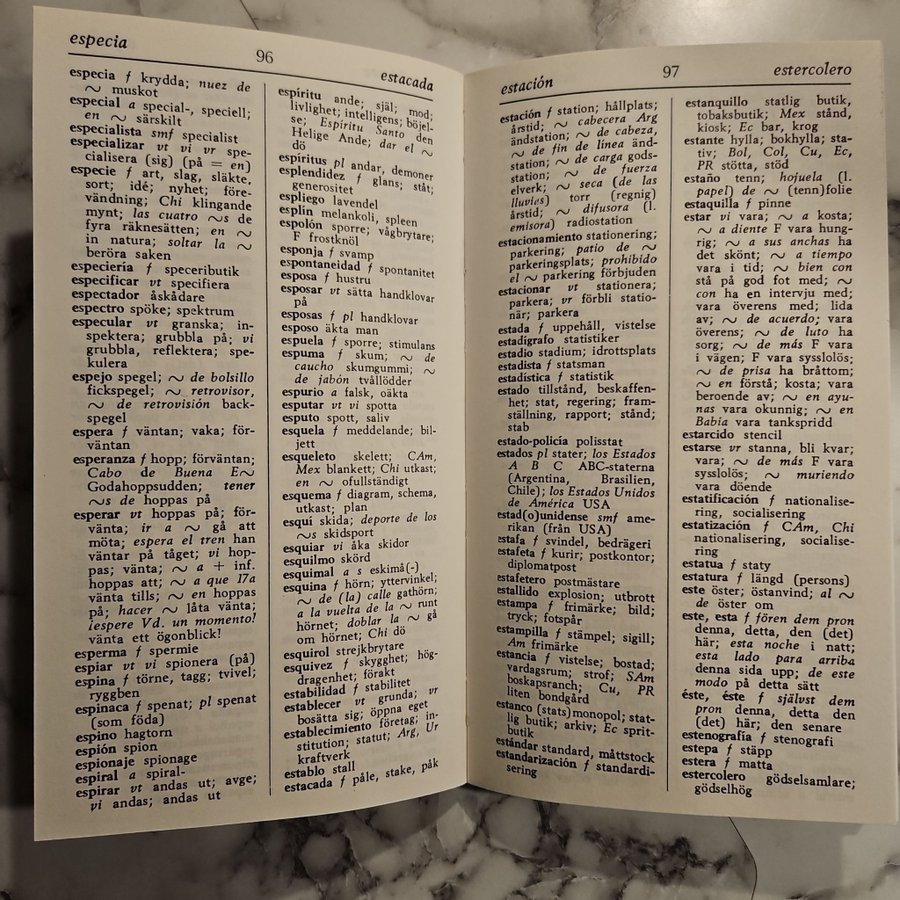 especia
96
estacada
especia f krydda; nuez de
~ muskot
especial a special-, speciell;
en ~ särskilt
especialista smf specialist
especializar vt vi vr spe-
cialisera (sig) (på = en)
especie f art, slag, släkte,
sort; idé; nyhet; före-
vändning; Chi klingande
mynt; las cuatro ~s de
fyra räknesätten; en ~
in natura; soltar la ~
beröra saken
especiería f speceributik
especificar vt specifiera
espectador åskådare
espectro spöke; spektrum
especular vt granska; in-
spektera; grubbla på; vi
grubbla, reflektera; spe-
kulera
espejo spegel; ~ de bolsillo
fickspegel; ~ retrovisor,
~ de retrovisión back-
spegel
espera f väntan; vaka; för-
väntan
esperanza f hopp; förväntan;
Cabo de Buena E~
Godahoppsudden; tener
~s de hoppas på
esperar vt hoppas på; för-
vänta; ir a ~ gå att
möta; espera el tren han
väntar på tåget; vi hop-
pas; vänta; ~ a + inf.
hoppas att; ~ a que 17a
vänta tills; ~ en hoppas
på; hacer ~ låta vänta;
¡espere Vd. un momento!
vänta ett ögonblick!
esperma f spermie
espiar vt vi spionera (på)
espina f törne, tagg; tvivel;
ryggben
espinaca f spenat; pl spenat
(som föda)
espino hagtorn
espión spion
espionaje spionage
espiral a spiral-
espirar vt andas ut; avge;
vi andas; andas ut
espíritu ande; själ; mod;
livlighet; intelligens; böjel-
se; Espíritu Santo den
Helige Ande; dar el ~
dö
espíritus pl andar, demoner
esplendidez f glans; ståt;
generositet
espliego lavendel
esplín melankoli, spleen
espolón sporre; vågbrytare;
F frostknöl
esponja f svamp
espontaneidad f spontanitet
esposa f hustru
esposar vt sätta handklovar
på
esposas f pl handklovar
esposo äkta man
espuela f sporre; stimulans
espuma f skum; ~ de
caucho skumgummi; ~
de jabón tvållödder
espurio a falsk, oäkta
esputar vt vi spotta
esputo spott, saliv
esquela f meddelande; bil-
jett
esqueleto skelett; CAm,
Mex blankett; Chi utkast;
en ~ ofullständigt
esquema f diagram, schema,
utkast; plan
esquí skida; deporte de los
~s skidsport
esquiar vi åka skidor
esquilmo skörd
esquimal a s eskimå(-)
esquina f hörn; yttervinkel;
~ de (la) calle gathörn;
a la vuelta de la ~ runt
hörnet; doblar la ~ gå
om hörnet; Chi dö
esquirol strejkbrytare
esquivez f skygghet; hög-
dragenhet; förakt
estabilidad f stabilitet
establecer vt grunda; vr
bosätta sig; öppna eget
establecimiento företag; in-
stitution; statut; Arg, Ur
kraftverk
establo stall
estacada f påle, stake, påk
estación
97
estercolero
estación f station; hållplats;
årstid; ~ cabecera Arg
ändstation; ~ de cabeza,
~ de fin de línea änd-
station; ~ de carga gods-
station; ~ de fuerza
elverk; ~ seca (de las
lluvies) torr (regnig)
årstid; ~ difusora (l.
emisora) radiostation
estacionamiento stationering;
parkering; patio de ~
parkeringsplats; prohibido
el ~ parkering förbjuden
estacionar vt stationera;
parkera; vr förbli statio-
när; parkera
estada f uppehåll, vistelse
estadígrafo statistiker
estadio stadium; idrottsplats
estadista f statsman
estadística f statistik
estado tillstånd, beskaffen-
het; stat, regering; fram-
ställning, rapport; stånd;
stab
estado-policía polisstat
estados pl stater; los Estados
A B C ABC-staterna
(Argentina, Brasilien,
Chile); los Estados Unidos
de América USA
estad(o)unidense smf ame-
rikan (från USA)
estafa f svindel, bedrägeri
estafeta f kurir; postkontor;
diplomatpost
estafetero postmästare
estallido explosion; utbrott
estampa f frimärke; bild;
tryck; fotspår
estampilla f stämpel; sigill;
Am frimärke
estancia f vistelse; bostad;
vardagsrum; strof; SAm
boskapsranch; Cu, PR
liten bondgård
estanco (stats)monopol; stat-
lig butik; arkiv; Ec sprit-
butik
estándar standard, måttstock
estandarización f standardi-
sering
estanquillo statlig butik,
tobaksbutik; Mex stånd,
kiosk; Ec bar, krog
estante hylla; bokhylla; sta-
tiv; Bol, Col, Cu, Ec,
PR stötta, stöd
estaño tenn; hojuela (l.
papel) de ~ (tenn)folie
estaquilla f pinne
estar vi vara; ~ a kosta;
~ a diente F vara hung-
rig; ~ a sus anchas ha
det skönt; ~ a tiempo
vara i tid; ~ bien con
stå på god fot med; ~
con ha en intervju med;
vara överens med; lida
av; ~ de acuerdo; vara
överens; ~ de luto ha
sorg; ~ de más F vara
i vägen; F vara sysslolös;
~ de prisa ha bråttom;
~ en förstå; kosta; vara
beroende av; ~ en ayu-
nas vara okunnig; ~ en
Babia vara tankspridd
estarcido stencil
estarse vr stanna, bli kvar;
vara; ~ de más F vara
sysslolös; ~ muriendo
vara döende
estatificación f nationalise-
ring, socialisering
estatización f CAm, Chi
nationalisering, socialise-
ring
estatua f staty
estatura f längd (persons)
este öster; östanvind; al ~
de öster om
este, esta f fören dem pron
denna, detta, den (det)
här; esta noche i natt;
esta lado para arriba
denna sida upp; de este
modo på detta sätt
éste, éste f självst dem
pron denna, detta den
(det) här; den senare
estenografía f stenografi
estepa f stäpp
estera f matta
estercolero gödselsamlare;
gödselhög